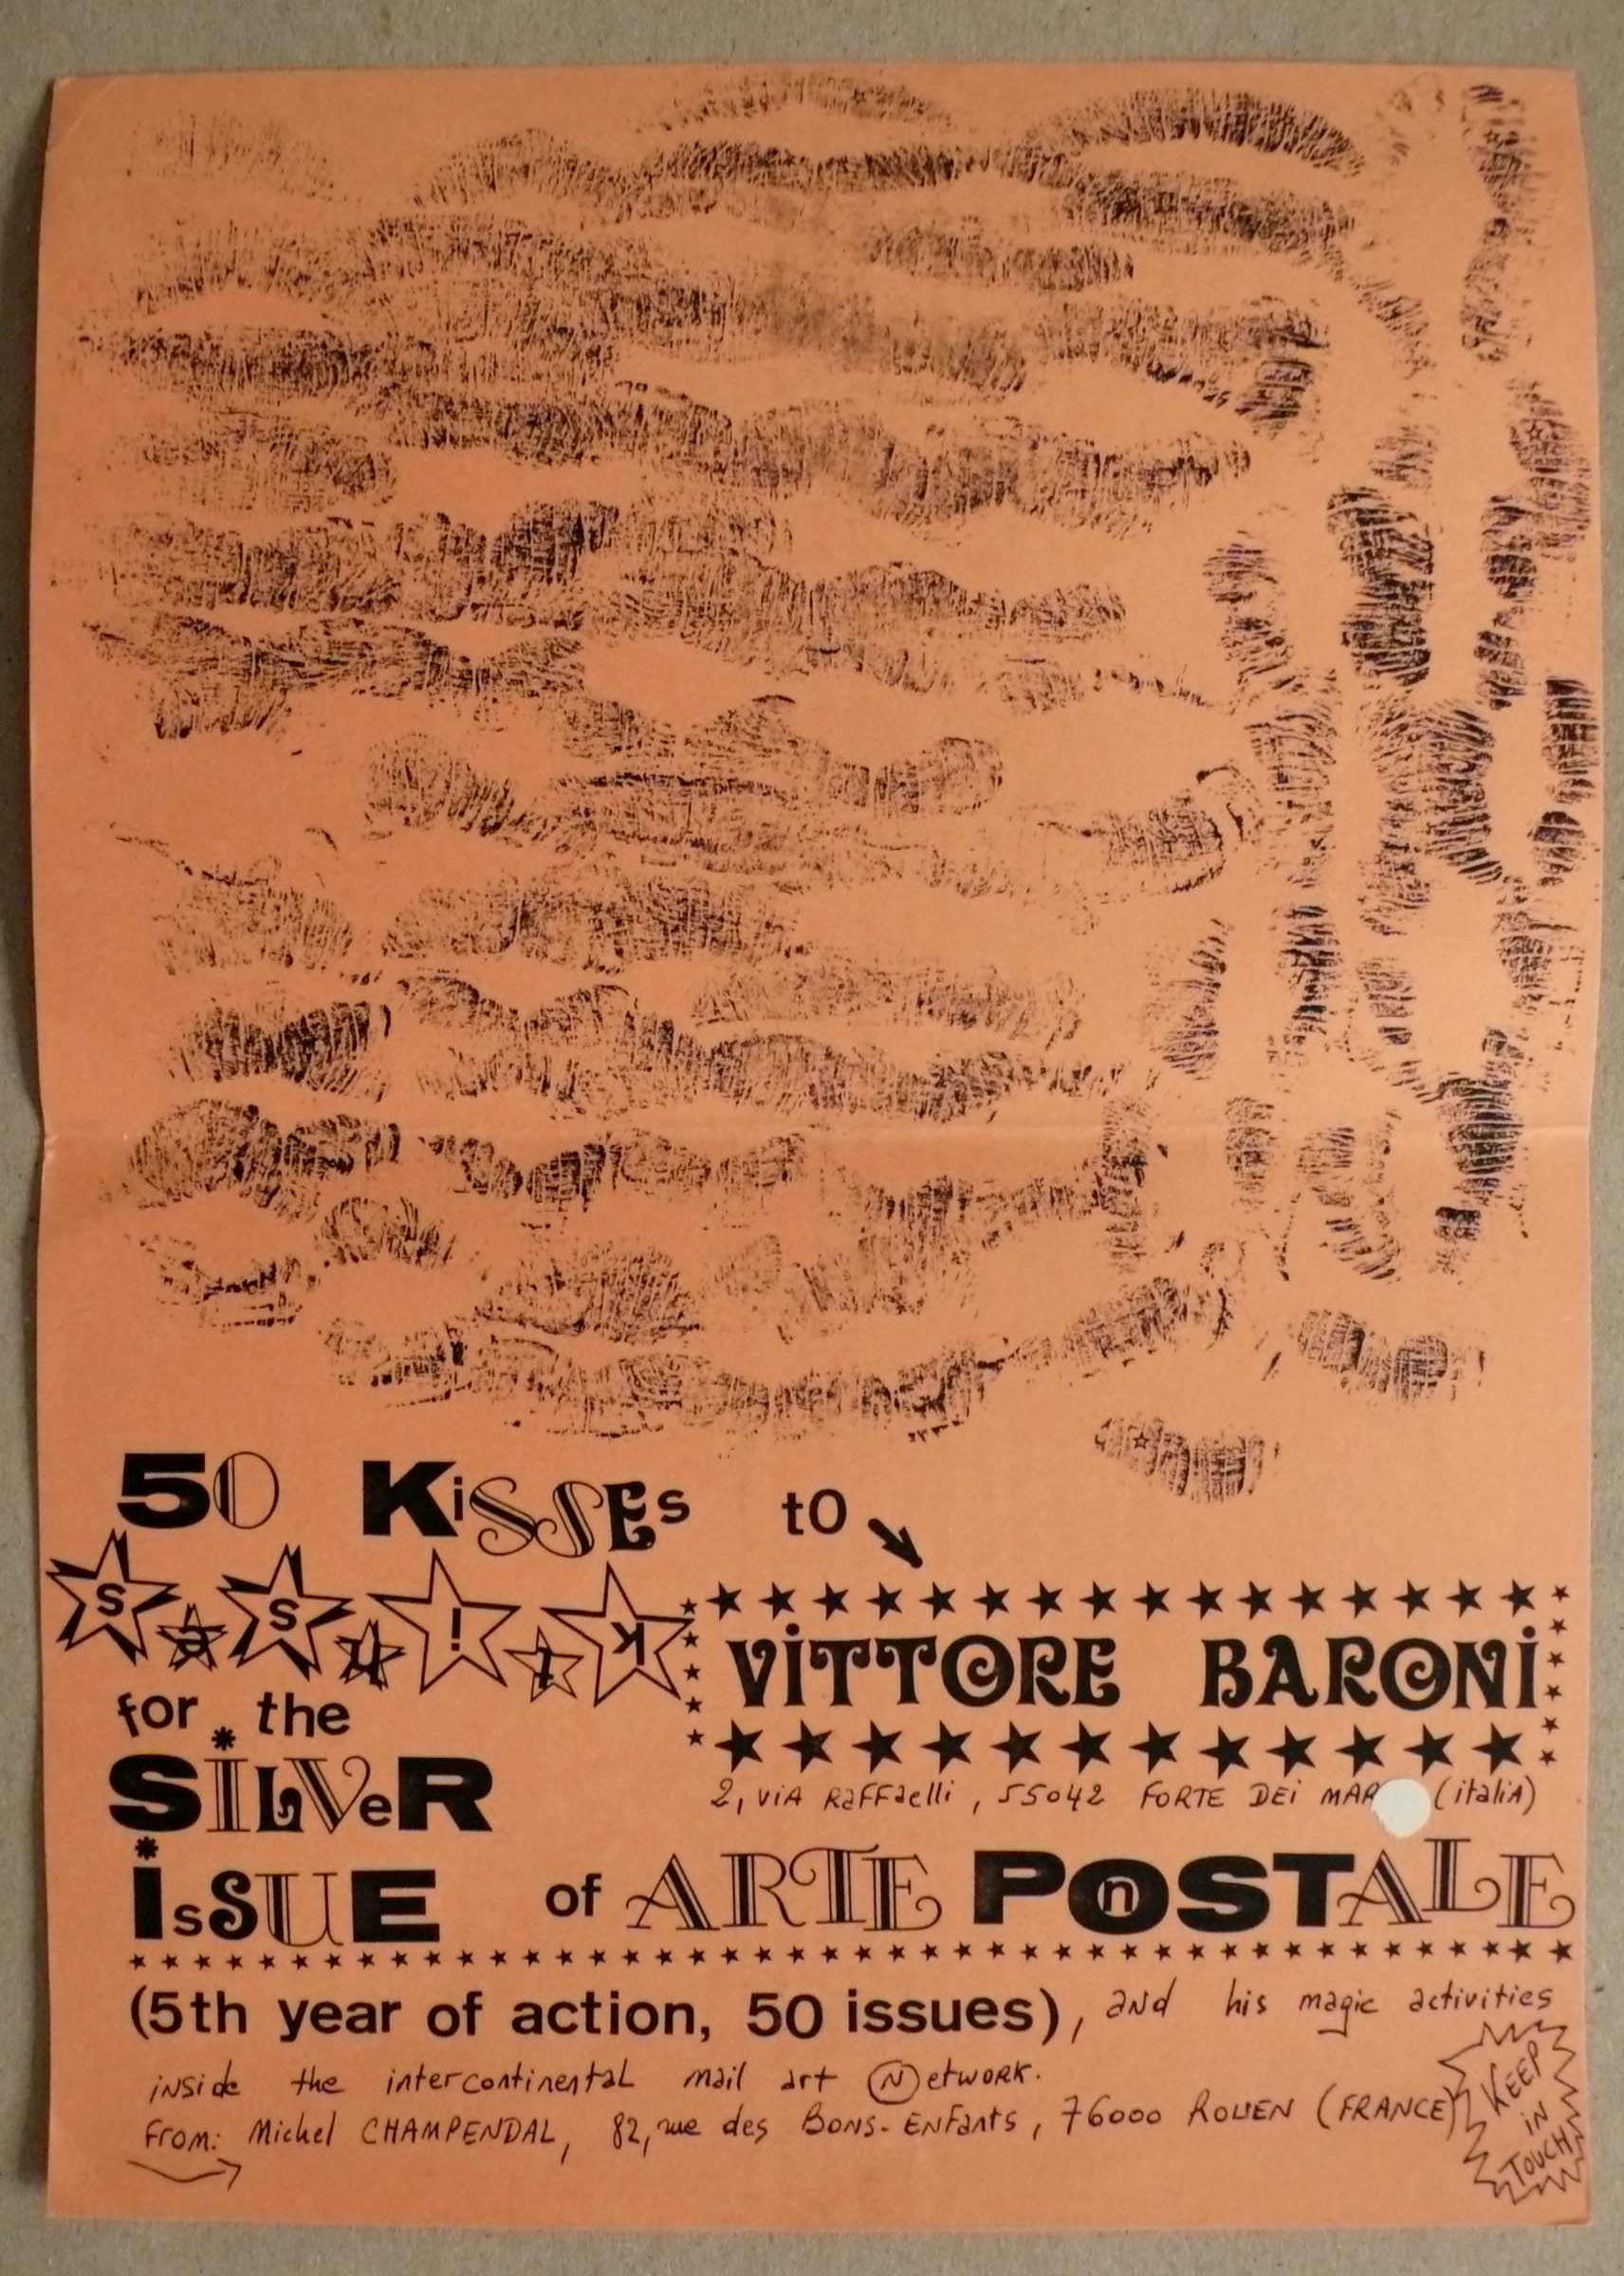 50 KiSSEs to
S S ! K
for the
VITTORE BARONI
SILVeR
2, viA RaFFaelli, 55042 FORTE DEI MAR (italiA)
IsSUE of ARTE POSTALE
n
(5th year of action, 50 issues), and his magic activities
inside the intercontinental mail art Network.
From: Michel CHAMPENDAL, 82, rue des BONS-ENFants, 76000 ROUEN (FRANCE)
KEEP
iN
TOUCH